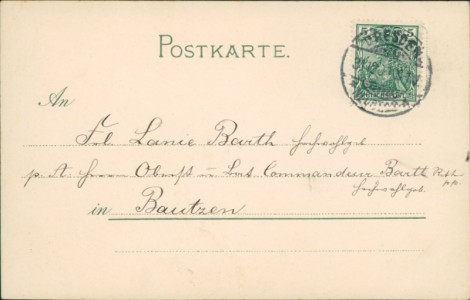 POSTKARTE.
5 5
DRESDEN
An
Frl. Lanie Barth Hochwohlgeb
p. A. Herrn Oberst u Bat Commandeur Barth
Hochwohlgeb.
in Bautzen